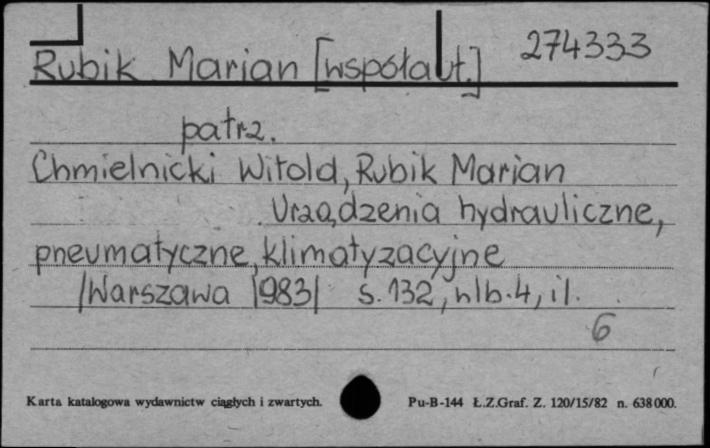 Rubik Marian [współaut.] 274333
patrz.
Chmielnicki Witold, Rubik Marian
Urządzenia hydrauliczne,
pneumatyczne, klimatyzacyjne
/Warszawa 1983/ s. 132, nlb. 4, il.
6
Karta katalogowa wydawnictw ciągłych i zwartych. Pu-B-144 Ł.Z.Graf. Z. 120/15/82 n. 638 000.